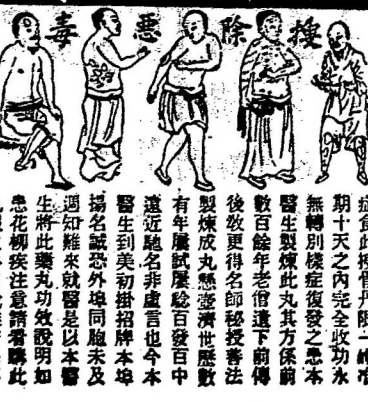 搜除惡毒
症食此搜骨丹限一
期十天之內完全收功永
無轉別樣症復發之患本
醫生製煉此丸其方係前
數百餘年老僧遺下前傳
後教更得名師秘授善法
製煉成丸懸壺濟世歷數
有年屢試屢驗百發百中
遠近馳名非虛言也今本
醫生到美初掛招牌本埠
揚名誠恐外埠同胞未及
週知難來就醫是以本醫
生將此藥丸功效說明如
患花柳疾注意請看購此